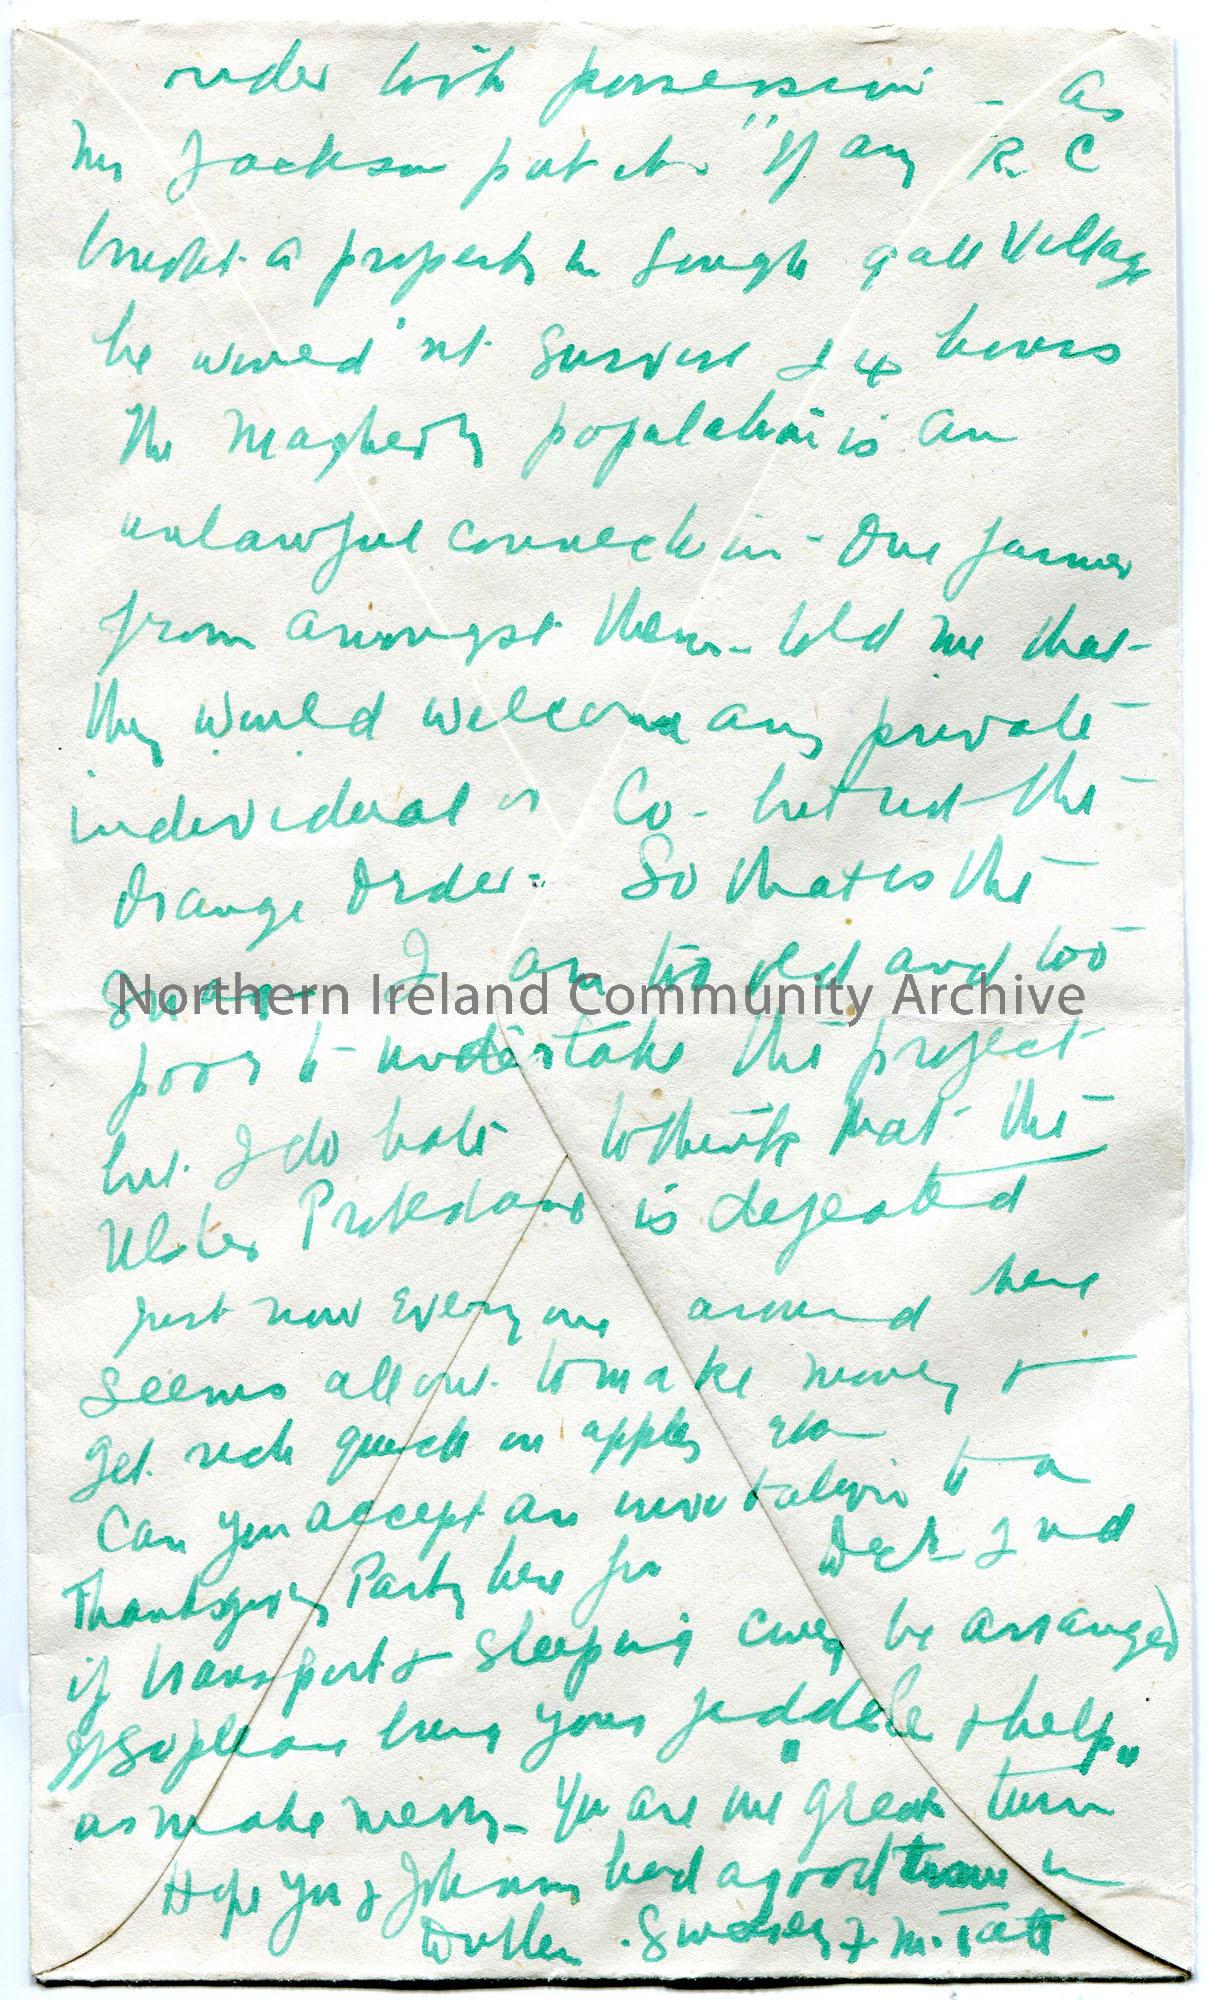 order with possession - as
Mr Jackson put it. "If any R. C
bought a property in Lough gall Village
he would 'nt survive 24 hours
The Maghery population is an
unlawful connection - One farmer
from amongst them - told me that
they would welcome any private
individual or Co - but not the
Orange Order. So that is the
I am too old and too
Northern Ireland Community Archive
poor to undertake this project
but I do hate to think that the
Ulster Protestant is defeated
Just now everyone around here
seems all out to make money &
get rich quick on apples
Can you accept an invitation to a
Thanksgiving Party here for Dec 2nd
if transport & sleeping can be arranged
If so please bring your fiddle & "help"
us make merry - You are one great turn
Hope you & Johnny had a good time in
Dublin . & M. Tate